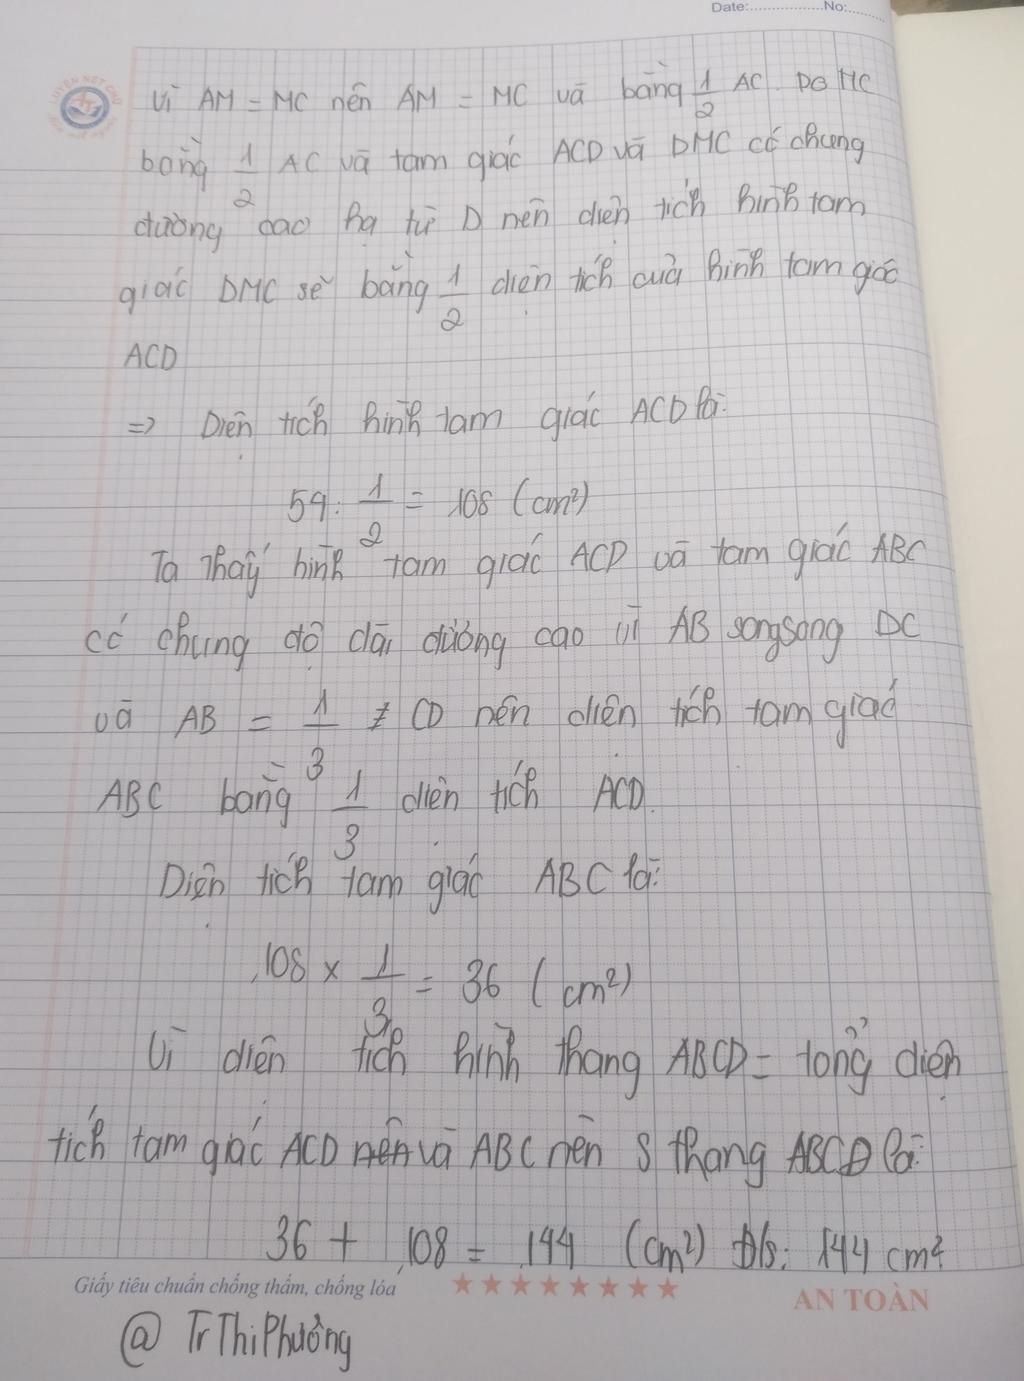 Date:...............No:.........
LUYỆN NÉT CHỮ
Vì AM = MC nên AM = MC và bằng 1/2 AC. Do MC
bằng 1/2 AC và tam giác ACD và DMC có chung
đường cao hạ từ D nên diện tích hình tam
giác DMC sẽ bằng 1/2 diện tích của hình tam giác
ACD
=> Diện tích hình tam giác ACD là:
54 : 1/2 = 108 (cm²)
Ta thấy hình tam giác ACD và tam giác ABC
có chung độ dài đường cao vì AB song song DC
và AB = 1/3 CD nên diện tích tam giác
ABC bằng 1/3 diện tích ACD.
Diện tích tam giác ABC là:
108 x 1/3 = 36 (cm²)
Vì diện tích hình thang ABCD = tổng diện
tích tam giác ACD nên và ABC nên S thang ABCD là:
36 + 108 = 144 (cm²) Đ/s: 144 cm²
Giấy tiêu chuẩn chống thấm, chống lóa
AN TOÀN
@ TrThiPhương